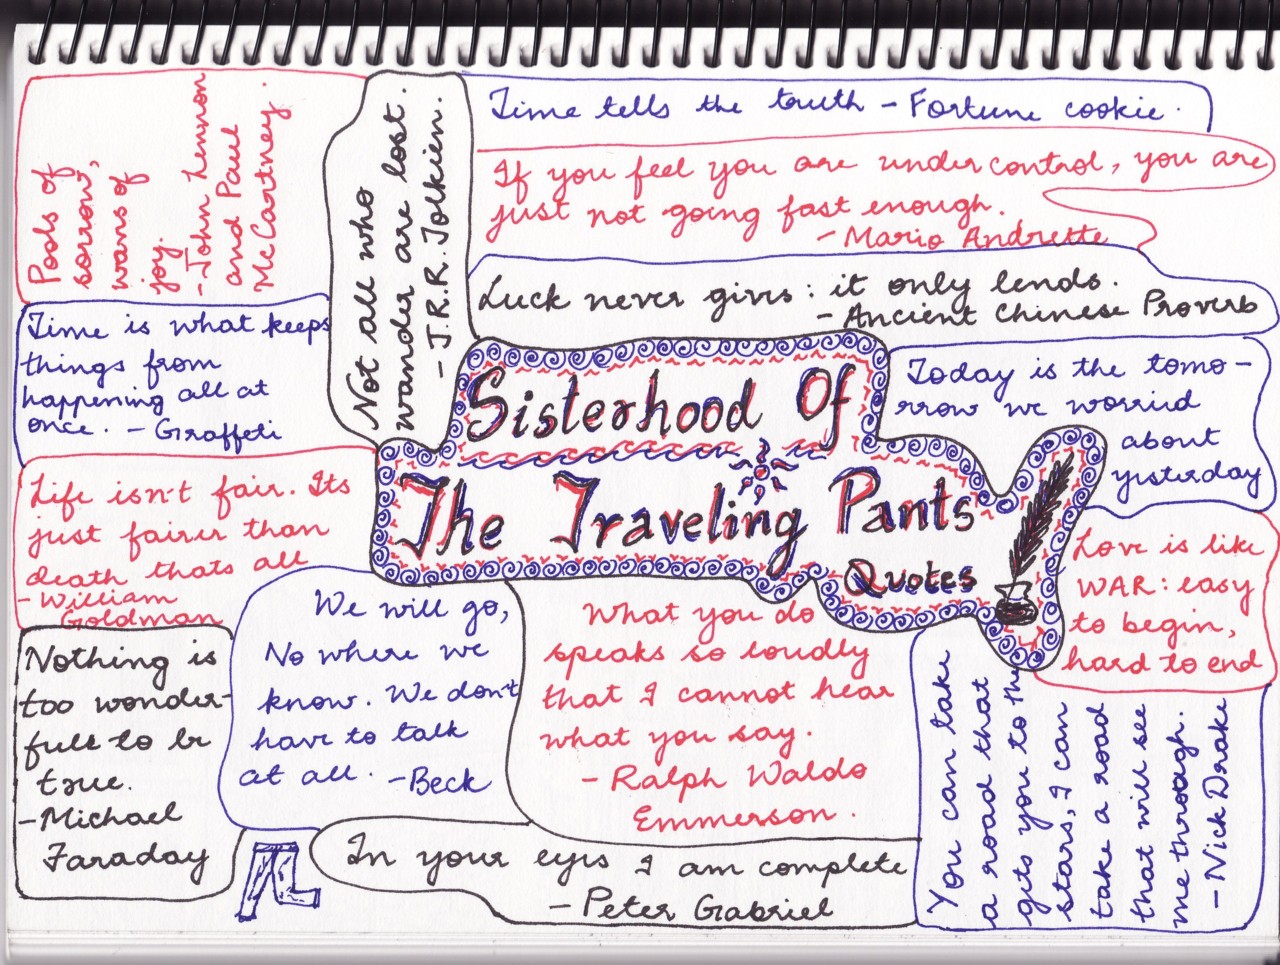 Pools of
sorrow,
waves of
joy.
- John Lennon
and Paul
McCartney.
Not all who
wander are lost.
- J.R.R. Tolkien.
Time tells the truth - Fortune cookie.
If you feel you are under control, you are
just not going fast enough.
- Mario Andrette
Luck never gives: it only lends.
- Ancient Chinese Proverb
Time is what keeps
things from
happening all at
once. - Graffeti
Sisterhood Of
The Traveling Pants
Quotes
Today is the tomo-
rrow we worried
about
yesterday
Life isn't fair. Its
just fairer than
death thats all
- William
Goldman
Love is like
WAR: easy
to begin,
hard to end
Nothing is
too wonder-
full to be
true.
- Michael
Faraday
We will go,
No where we
know. We don't
have to talk
at all. - Beck
What you do
speaks so loudly
that I cannot hear
what you say.
- Ralph Waldo
Emmerson.
You can take
a road that
gets you to the
stars, I can
take a road
that will see
me through.
- Nick Drake
In your eyes I am complete
- Peter Gabriel